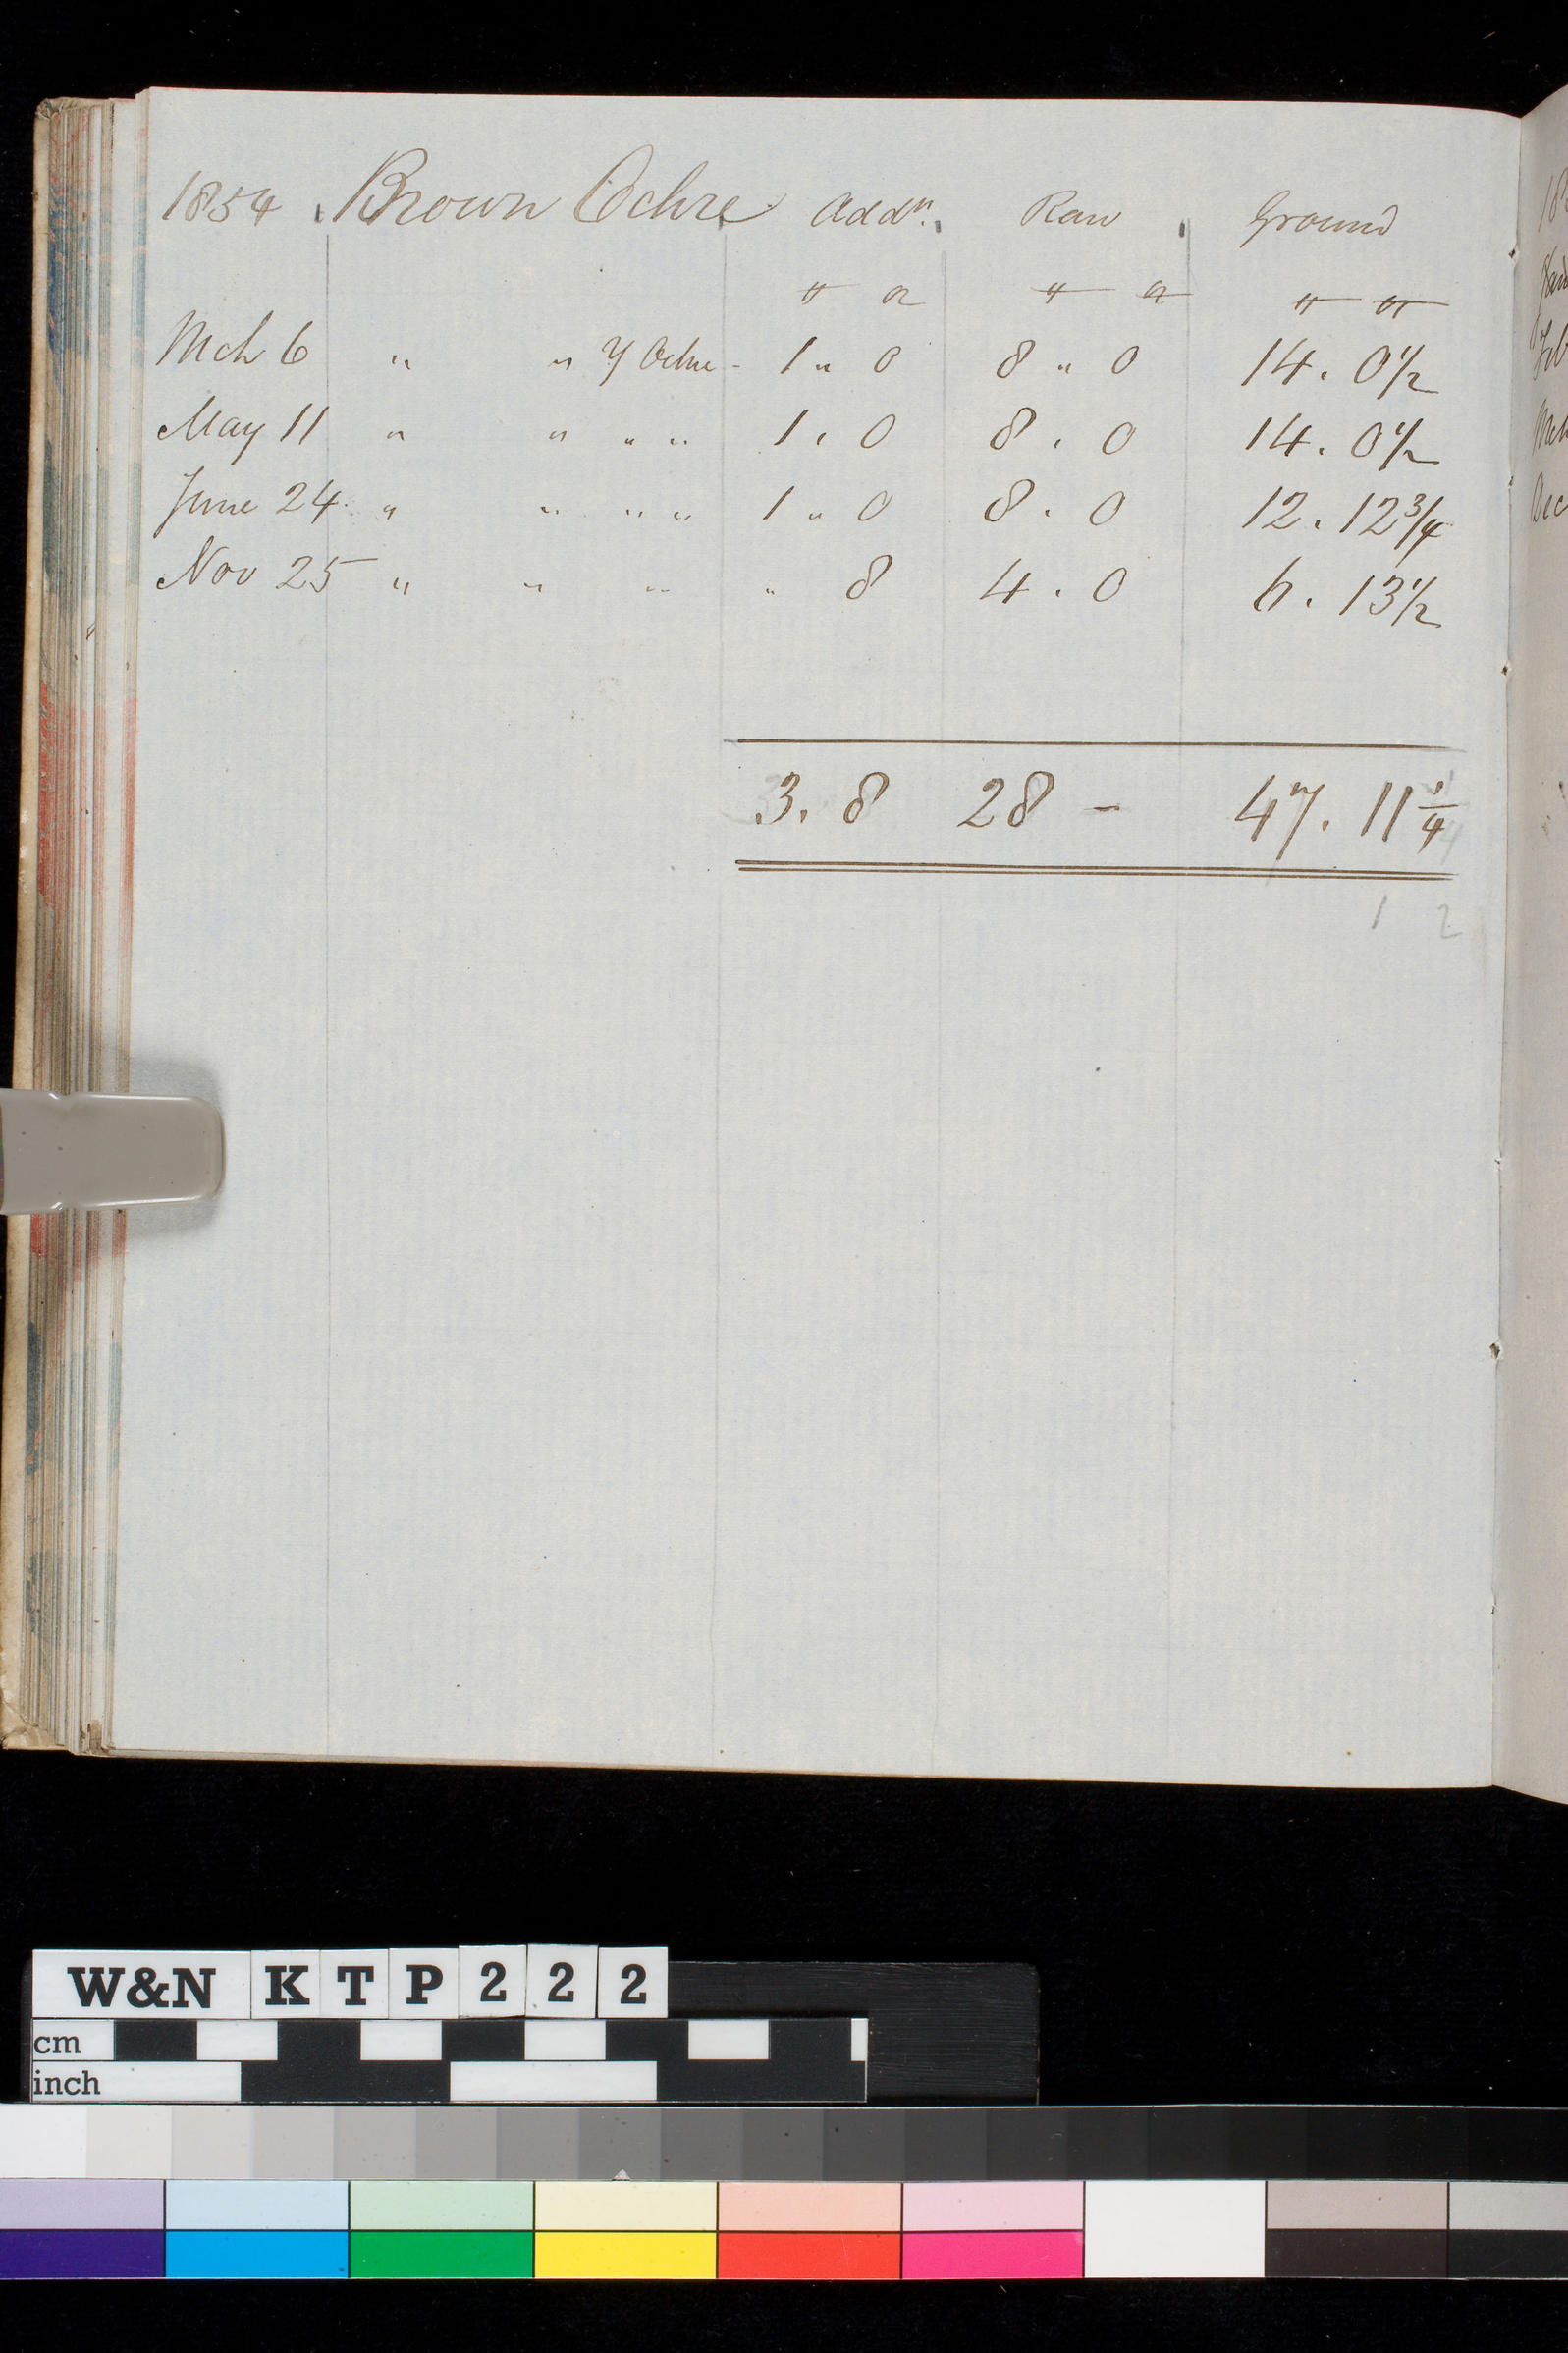 1854 Brown Ochre Addn. Raw Ground
℔ oz ℔ oz ℔ oz
Mch 6 " " Y Ochre - 1 " 0 8 " 0 14 . 0 1/2
May 11 " " " " 1 . 0 8 . 0 14 . 0 1/2
June 24 " " " " 1 " 0 8 . 0 12 . 12 3/4
Nov 25 " " " " 8 4 . 0 6 . 13 1/2
3 . 8 28 - 47 . 11 1/4
1 2
W&N KTP222
cm
inch